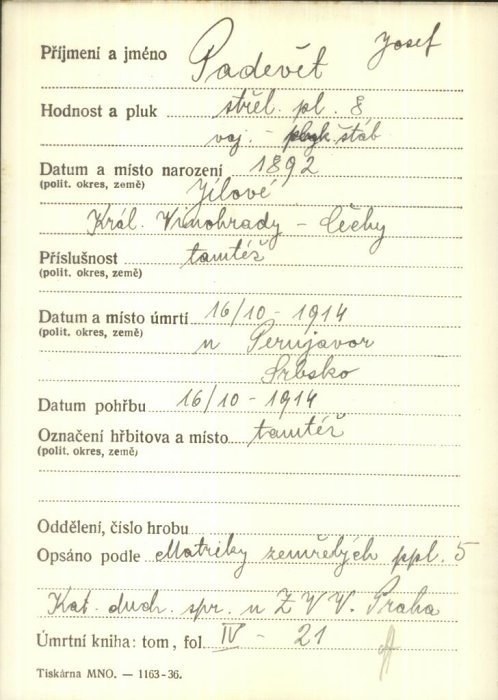 Příjmení a jméno Padevět Josef
Hodnost a pluk střel. pl. 8
voj. - štáb
Datum a místo narození 1892
(polit. okres, země) Jílové
Král. Vinohrady - Čechy
Příslušnost tamtéž
(polit. okres, země)
Datum a místo úmrtí 16/10 - 1914
(polit. okres, země) u Perujavor
Srbsko
Datum pohřbu 16/10 - 1914
Označení hřbitova a místo tamtéž
(polit. okres, země)
Oddělení, číslo hrobu
Opsáno podle Matriky zemřelých ppl. 5
Kat. duch. spr. u Z V V. Praha
Úmrtní kniha: tom, fol. IV - 21
Tiskárna MNO. — 1163-36.